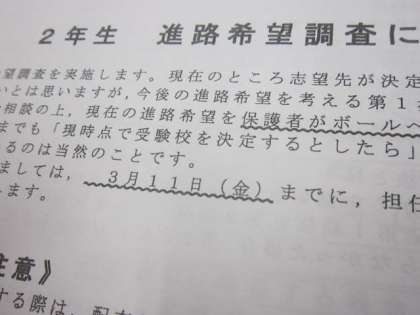 2年生　進路希望調査に
望調査を実施します。現在のところ志望先が決定
いとは思いますが，今後の進路希望を考える第1
相談の上，現在の進路希望を保護者がボールペ
までも「現時点で受験校を決定するとしたら」
るのは当然のことです。
ましては，　3月11日（金）までに，担任
します。
注意》
する際は，配